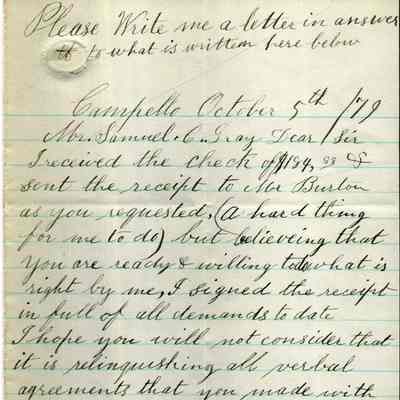 Please Write me a letter in answer
to what is written here below
Campello October 5th /79
Mr. Samuel. C. Gray Dear Sir
I received the check of $184, 88 &
sent the receipt to Mr Burton
as you requested, (a hard thing
for me to do) but believeing that
you are ready & willing to do what is
right by me, I signed the receipt
in full of all demands to date
I hope you will not consider that
it is relinquishing all verbal
agreements that you made with